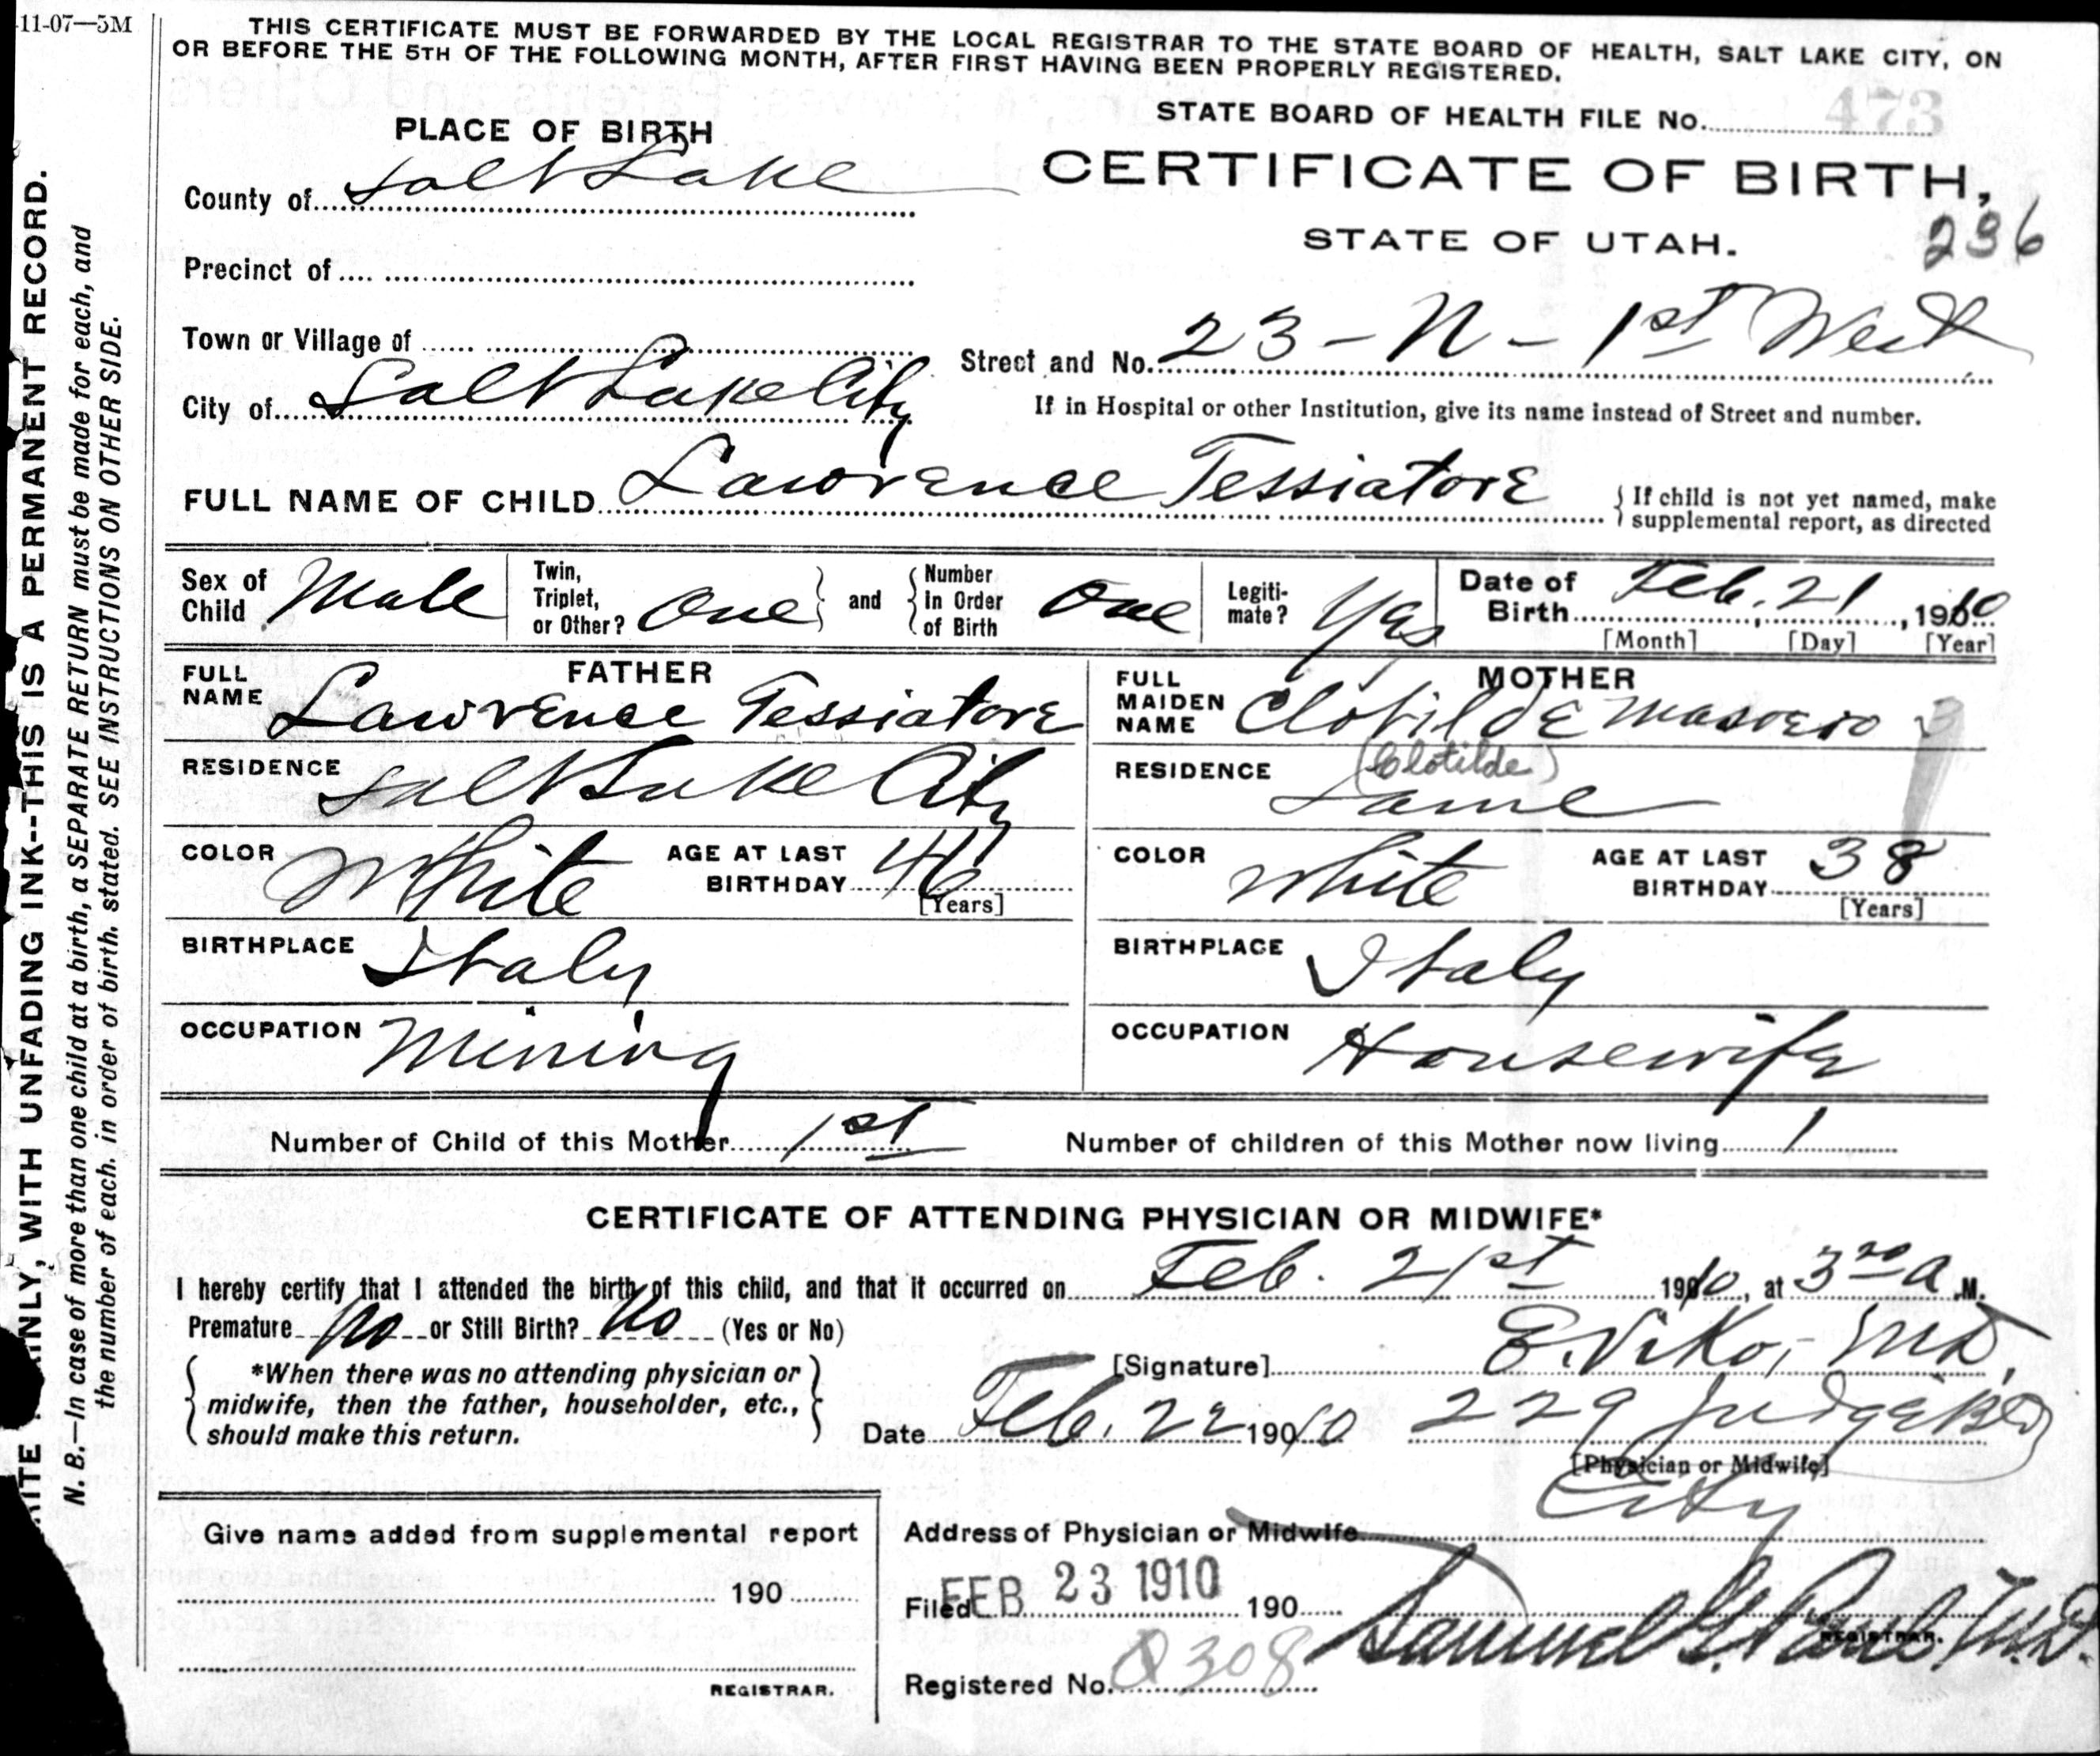 11-07—5M
THIS CERTIFICATE MUST BE FORWARDED BY THE LOCAL REGISTRAR TO THE STATE BOARD OF HEALTH, SALT LAKE CITY, ON
OR BEFORE THE 5TH OF THE FOLLOWING MONTH, AFTER FIRST HAVING BEEN PROPERLY REGISTERED.
STATE BOARD OF HEALTH FILE No. 473
PLACE OF BIRTH
CERTIFICATE OF BIRTH,
County of Salt Lake
STATE OF UTAH.
236
Precinct of
Town or Village of
Street and No. 23 - N - 1st West
City of Salt Lake City
If in Hospital or other Institution, give its name instead of Street and number.
FULL NAME OF CHILD Lawrence Tessiatore
{ If child is not yet named, make
supplemental report, as directed
Sex of Child Male
Twin, Triplet, or Other? One } and { Number In Order of Birth One
Legiti- mate? Yes
Date of Birth Feb. 21, 1910
[Month] [Day] [Year]
FATHER
FULL NAME Lawrence Tessiatore
RESIDENCE Salt Lake City
COLOR White AGE AT LAST BIRTHDAY 46
[Years]
BIRTHPLACE Italy
OCCUPATION Mining
MOTHER
FULL MAIDEN NAME Clotilde Masoero
(Clotilde)
RESIDENCE Same
COLOR White AGE AT LAST BIRTHDAY 38
[Years]
BIRTHPLACE Italy
OCCUPATION Housewife
Number of Child of this Mother 1st Number of children of this Mother now living 1
CERTIFICATE OF ATTENDING PHYSICIAN OR MIDWIFE*
I hereby certify that I attended the birth of this child, and that it occurred on Feb. 21st 1910, at 3 A.M.
Premature no or Still Birth? No (Yes or No)
[Signature] E. Viko, MD.
{ *When there was no attending physician or
midwife, then the father, householder, etc.,
should make this return. }
Date Feb. 22 1910 229 Judge Bld
[Physician or Midwife]
City
Address of Physician or Midwife
Give name added from supplemental report
190
REGISTRAR.
Filed FEB 23 1910 190
Samuel G. Paul, M.D.
REGISTRAR.
Registered No. 0308
WRITE PLAINLY, WITH UNFADING INK--THIS IS A PERMANENT RECORD.
N. B.—In case of more than one child at a birth, a SEPARATE RETURN must be made for each, and
the number of each. in order of birth. stated. SEE INSTRUCTIONS ON OTHER SIDE.